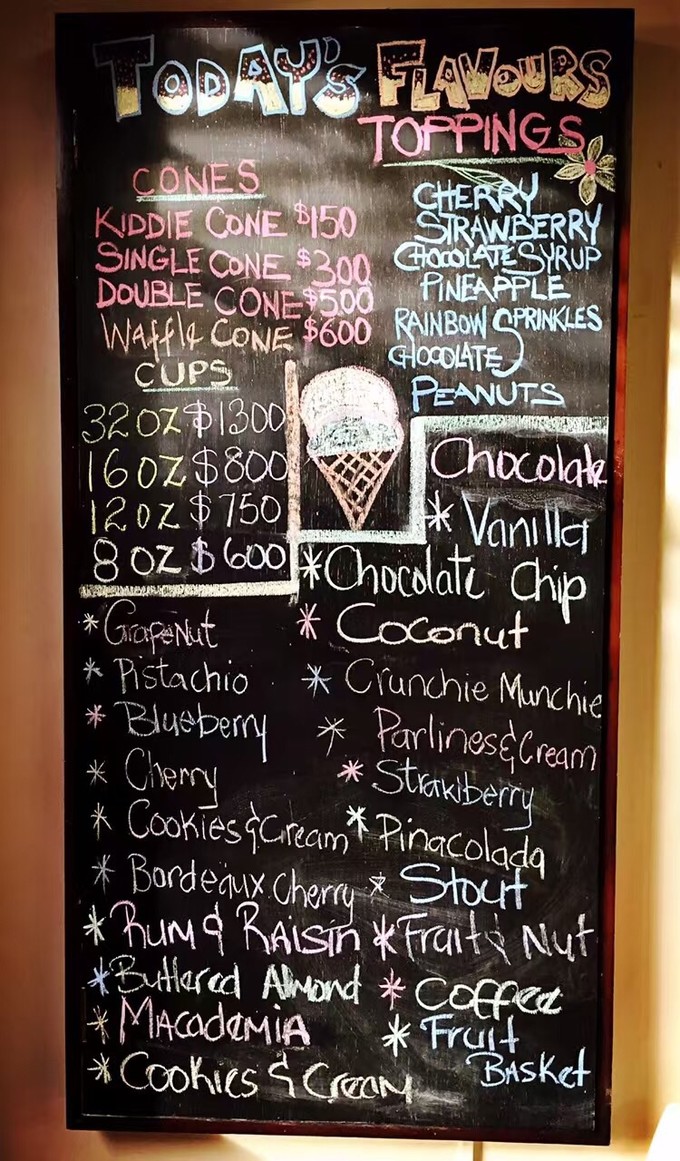 TODAY'S FLAVOURS
TOPPINGS
CONES
KIDDIE CONE $150
SINGLE CONE $300
DOUBLE CONE $500
Waffle CONE $600
CUPS
32 OZ $1300
16 OZ $800
12 OZ $750
8 OZ $600
CHERRY
STRAWBERRY
CHOCOLATE SYRUP
PINEAPPLE
RAINBOW SPRINKLES
CHOCOLATE
PEANUTS
Chocolate
* Vanilla
* Chocolate Chip
* Coconut
* Crunchie Munchie
* Parlines & Cream
* Strawberry
* Pinacolada
* Stout
* Fruit & Nut
* Coffee
* Fruit
Basket
* GrapeNut
* Pistachio
* Blueberry
* Cherry
* Cookies & Cream
* Bordeaux Cherry
* Rum & Raisin
* Buttered Almond
* Macademia
* Cookies & Cream